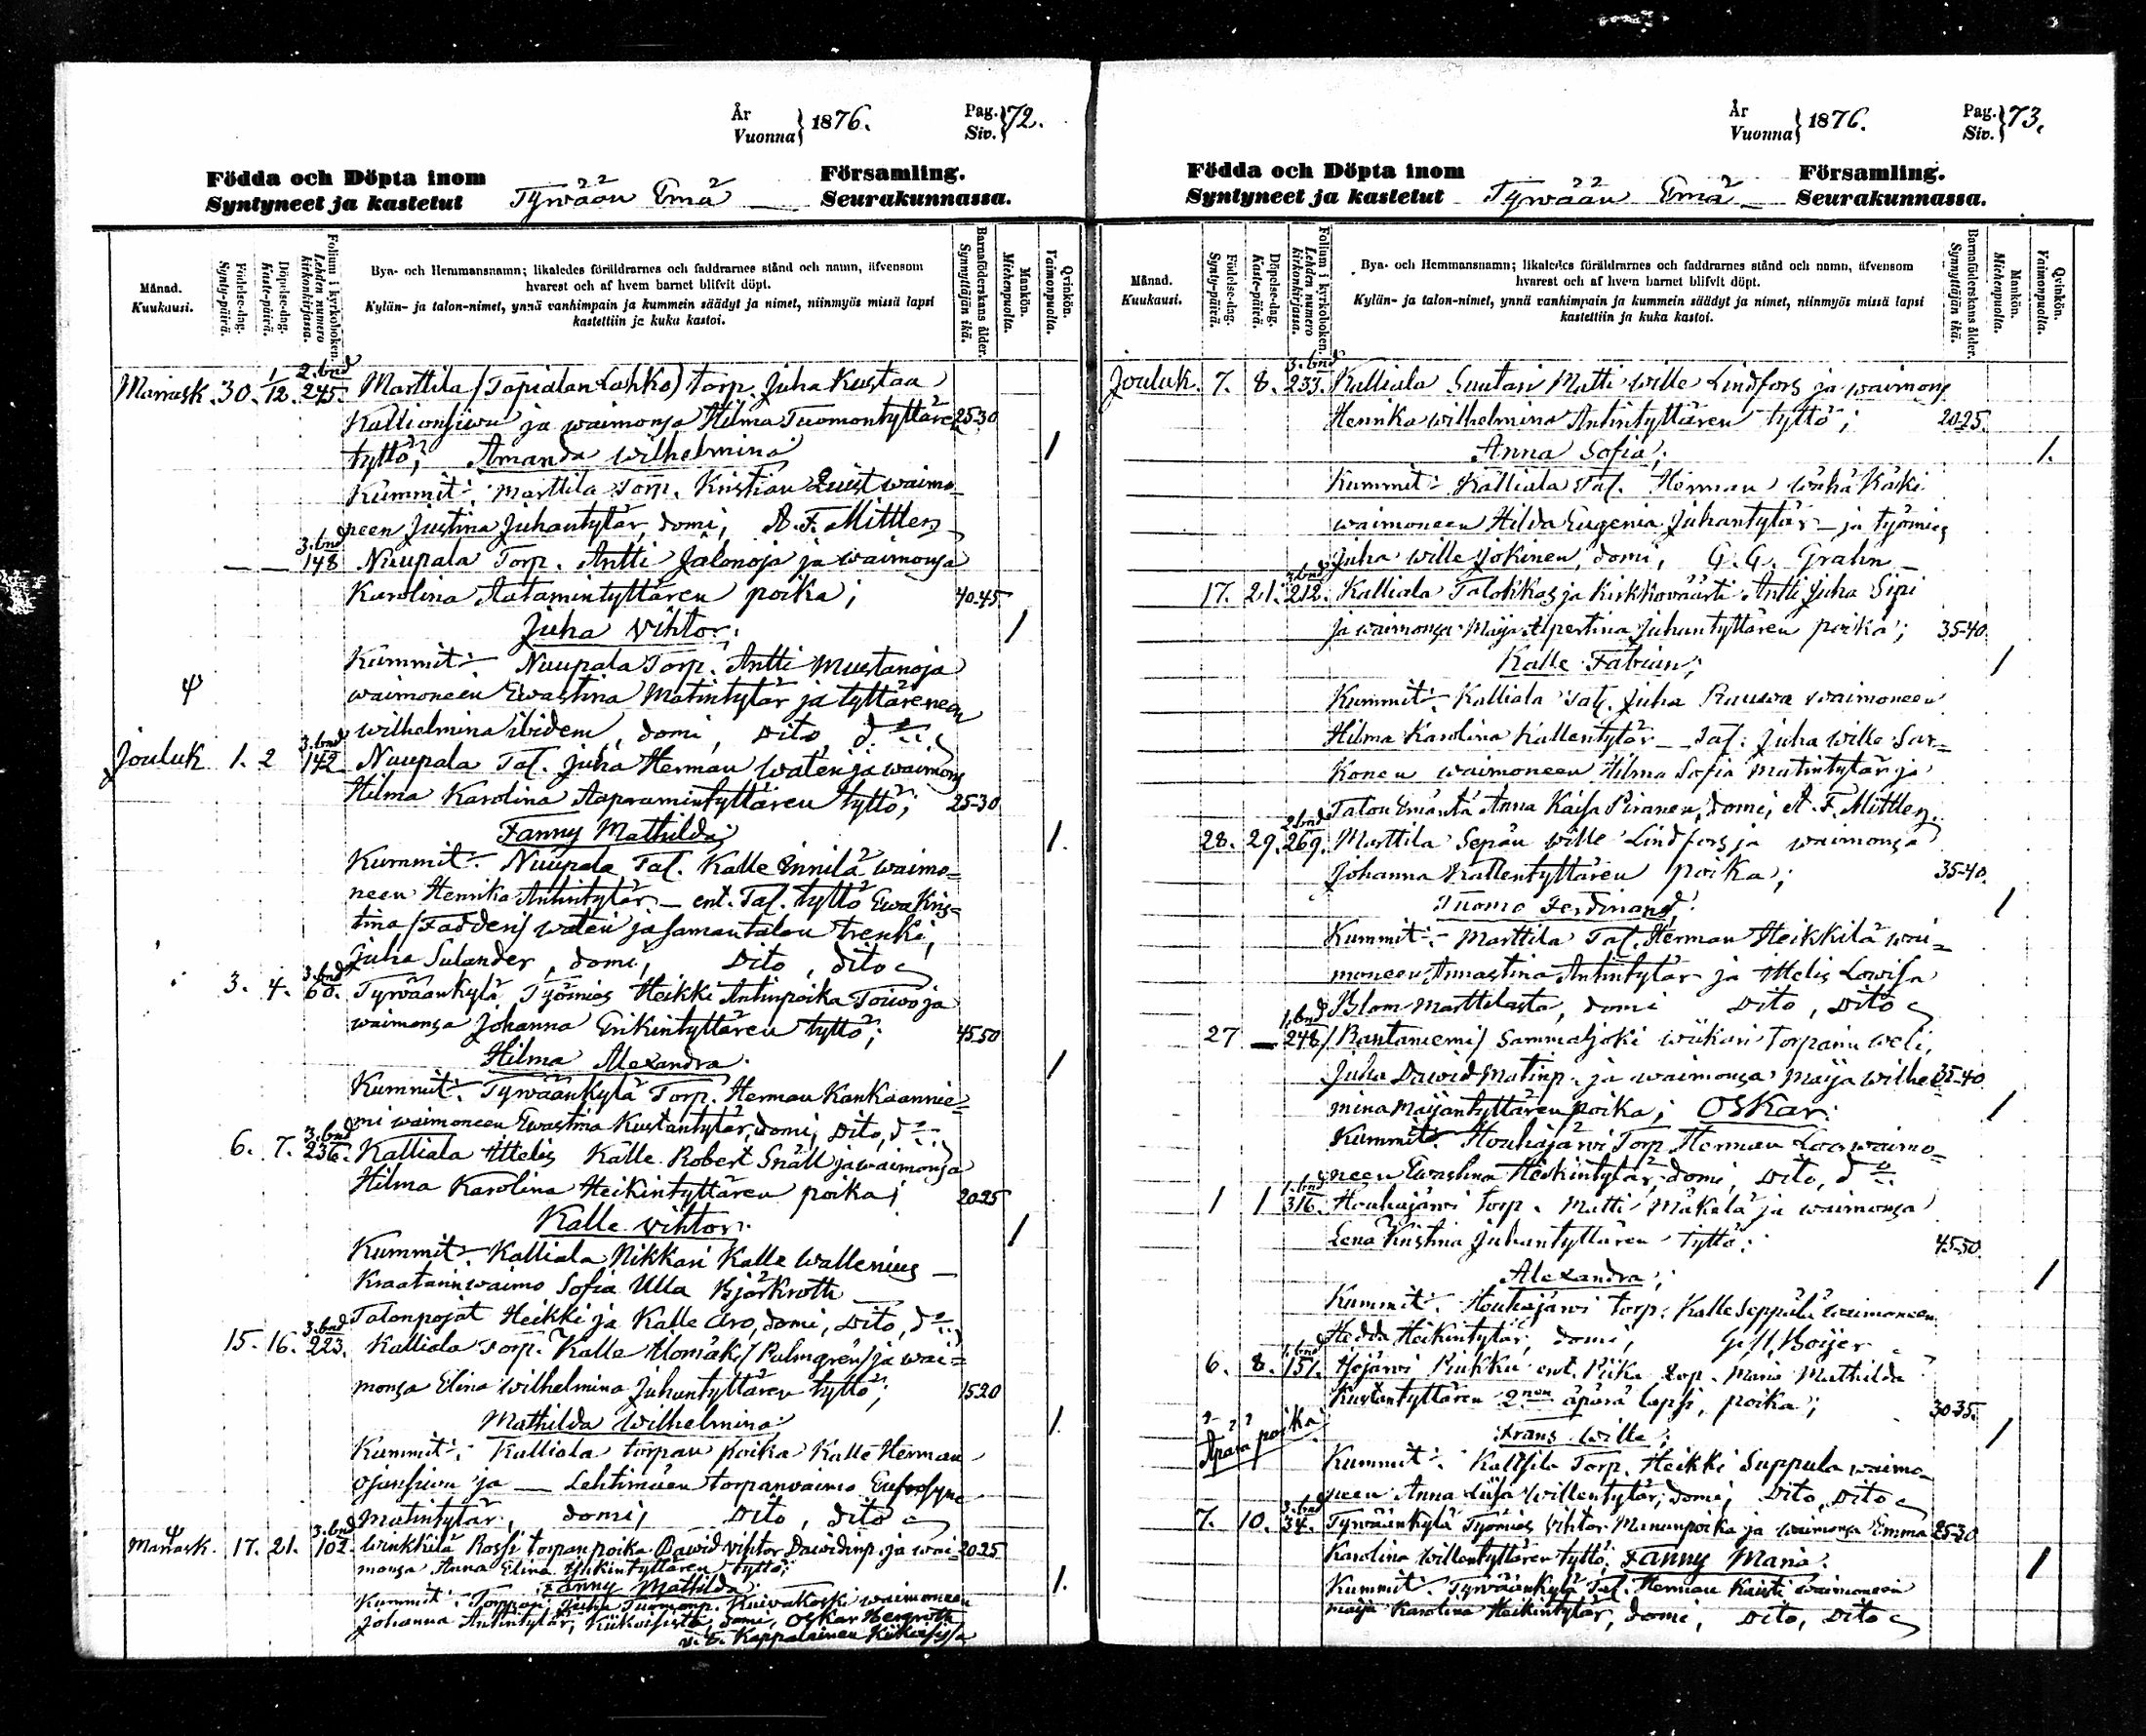 År
Vuonna} 1876.
Pag.
Siv.} 72.
Födda och Döpta inom Församling.
Syntyneet ja kastetut Tyrwään Emä Seurakunnassa.
Månad. Kuukausi.
Födelse-dag. Synty-päivä.
Döpelse-dag. Kaste-päivä.
Folium i kyrkoboken. Lehden numero kirkonkirjassa.
Bya- och Hemmansnamn; likaledes föräldrarnes och faddrarnes stånd och namn, äfvensom
hvarest och af hvem barnet blifvit döpt.
Kylän- ja talon-nimet, ynnä vanhimpain ja kummein säädyt ja nimet, niinmyös missä lapsi
kastettiin ja kuka kastoi.
Barnaföderskans ålder. Synnyttäjän ikä.
Mankön. Miehenpuolta.
Qvinkön. Vaimonpuolta.
Marrask. 30. 1/12. 2. bnd 245. Marttila (Tapialan Lahko) torp. Juha Kustaa
Kallionsiwu ja waimonsa Hilma Tuomontyttären 25-30
tyttö; Amanda Wilhelmina 1
Kummit: Marttila Torp. Kristian Quist waimo-
neen Justina Juhantytär, domi, A. F. Mittler
3. bnd 148 Nuupala Torp. Antti Jalonoja ja waimonsa
Karolina Aatamintyttären poika; 40-45
Juha Vihtor; 1
Kummit: Nuupala Torp. Antti Mustanoja
waimoneen Ewastina Matintytär ja tyttäreneen
Wilhelmina ibidem, domi, Dito, d:o
Jouluk 1. 2 3. bnd 142 Nuupala Tal. Juha Herman Waten ja waimons
Hilma Karolina Aapramintyttären tyttö; 25-30
Fanny Mathilda; 1.
Kummit: Nuupala Tal. Kalle Ennilä waimo=
neen Henrika Antintytär - ent. Tal. tyttö Ewa Kris=
tina (Fadderi) Waten ja saman talon trenki,
Juha Sulander, domi, Dito, dito
3. 4. 3. bnd 60. Tyrwäänkylä Työmies Heikki Antinpoika Toiwo ja
waimonsa Johanna Erikintyttären tyttö; 45-50
Hilma Alexandra. 1
Kummit: Tyrwäänkylä Torp. Herman Kankaannie=
mi waimoneen Ewastina Kustantytär, domi, Dito, d:o
6. 7. 3. bnd 236. Kalliala Ittelis Kalle Robert Snäll ja waimonsa
Hilma Karolina Heikintyttären poika; 20-25
Kalle Vihtor. 1
Kummit: Kalliala Nikkari Kalle Wallenius -
Kraatarinwaimo Sofia Ulla Björkroth
Talonpojat Heikki ja Kalle Aro, domi, Dito, d:o
15. 16. 3. bnd 223. Kalliala Torp. Kalle Alomäki (Palmgren) ja wai=
monsa Elina Wilhelmina Juhantyttären tyttö; 15-20
Mathilda Wilhelmina 1.
Kummit: Kalliala torpan poika Kalle Herman
Ojansiwu ja — Lehtimäen torpanwaimo Eufrosyne
Matintytär, domi, Dito, dito
Marrask. 17. 21. 3. bnd 102. Winkkilä Rossi torpan poika Dawid Vihtor Dawidinp. ja wai- 20-25
monsa Anna Elina Yrkintyttären tyttö;
Fanny Mathilda 1.
Kummit: Torppari Juha Tuomonp. Kuivakoski waimoneen
Johanna Antintytär, Kiikoisista, domi, Oskar Hergroth
v. t. Kappalainen Kiikoisissa
År
Vuonna} 1876.
Pag.
Siv.} 73.
Födda och Döpta inom Församling.
Syntyneet ja kastetut Tyrwään Emä Seurakunnassa.
Månad. Kuukausi.
Födelse-dag. Synty-päivä.
Döpelse-dag. Kaste-päivä.
Folium i kyrkoboken. Lehden numero kirkonkirjassa.
Bya- och Hemmansnamn; likaledes föräldrarnes och faddrarnes stånd och namn, äfvensom
hvarest och af hvem barnet blifvit döpt.
Kylän- ja talon-nimet, ynnä vanhimpain ja kummein säädyt ja nimet, niinmyös missä lapsi
kastettiin ja kuka kastoi.
Barnaföderskans ålder. Synnyttäjän ikä.
Mankön. Miehenpuolta.
Qvinkön. Vaimonpuolta.
Jouluk. 7. 8. 3. bnd 233. Kalliala Suutari Matti Wille Lindfors ja waimons
Henrika Wilhelmina Antintyttären tyttö; 20-25.
Anna Sofia; 1.
Kummit: Kalliala Tal. Herman Wähä Käiki
waimoneen Hilda Eugenia Juhantytär - ja työmies
Juha Wille Jokinen, domi, G. G. Grahn
17. 21. 3. bnd 212. Kalliala Talokkas ja Kirkkowäärti Antti Juha Sipi
ja waimonsa Maija Alpertina Juhantyttären poika; 35-40.
Kalle Fabian; 1
Kummit: Kalliala Tal. Juha Ruuswa waimoneen
Hilma Karolina Kallentytär - Tal. Juha Wille Sar=
konen waimoneen Hilma Sofia Matintytär ja
Talon Emäntä Anna Kaisa Piranen, domi, A. F. Mittler.
28. 29. 2 bnd 269. Marttila Sepän Wille Lindfors ja waimonsa
Johanna Kallentyttären poika; 35-40.
Tuomo Ferdinand. 1
Kummit: Marttila Tal. Herman Heikkilä wai=
moneen Annastina Antintytär ja Ittelis Lowisa
Blom Marttilasta, domi Dito, Dito
27 — 1. bnd 248 (Rantaniemi) Sammaljoki Wiikari Torparin weli,
Juha Dawid Matinp. ja waimonsa Maija Wilhel= 35-40
mina Maijantyttären poika; Oskar. 1
Kummit: Houhajärwi Torp Herman Loo waimo=
neen Ewastina Heikintytär, domi, Dito, d:o
1 1 1. bnd 316. Houhajärwi Torp. Matti Mäkelä ja waimonsa
Lena Kristina Juhantyttären tyttö; 45-50.
Alexandra; 1
Kummit: Houhajärwi Torp. Kalle Seppälä waimoneen
Hedda Heikintytär, domi, G. H. Boijer
6. 8. 1. bnd 151. Hojärwi Piukku ent. Piika Maria Mathilda
Kustantyttären 2:nen äpärä lapsi, poika; 30-35.
Äpärä poika. Frans Wille; 1
Kummit: Kaltsila Torp. Heikki Suppula waimo-
neen Anna Liisa Willentytär; domi, Dito, Dito
7. 10. 3. bnd 34. Tyrwäänkylä Työmies Vihtor Manunpoika ja waimonsa Emma 25-30
Karolina Willentyttären tyttö; Fanny Maria. 1
Kummit: Tyrwäänkylä Tal. Herman Kaisti waimoneen
Maija Karolina Heikintytär, domi, Dito, Dito